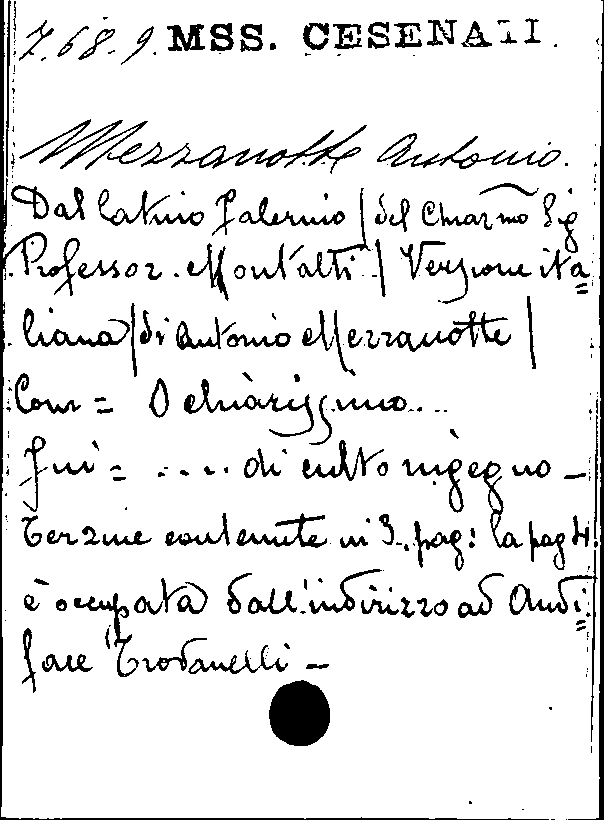 7.68.9. MSS. CESENATI.
Mezzanotte Antonio.
Dal latino Falernio | del Chiarmo Sig
Professor. Montalti | Versione ita=
liana | di Antonio Mezzanotte |
Com = O chiarissimo...
Fini = .... di culto ingegno –
Terzine contenute in 3. pag: la pag 4.
è occupata dall'indirizzo ad Audi=
face